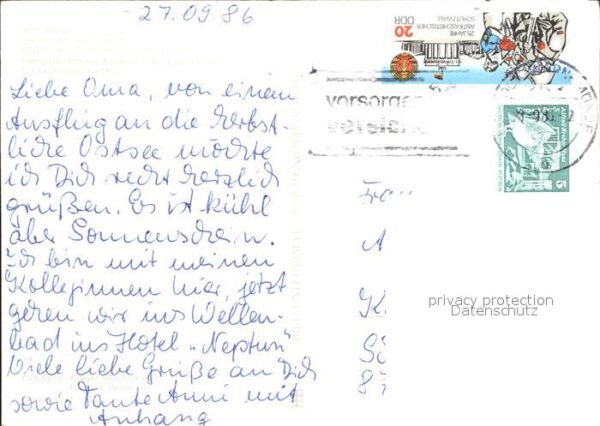 27.09.86
Liebe Oma, von einem
Ausflug an die herbst-
liche Ostsee möchte
ich Dich recht herzlich
grüßen. Es ist kühl
aber Sonnenschein.
Ich bin mit meinen
Kolleginnen hier, jetzt
gehen wir ins Wellen-
bad ins Hotel „Neptun"
Viele liebe Grüße an Dich
sowie Tante Anni mit
Anhang
20 DDR
25 JAHRE
ANTIFASCHISTISCHER
SCHUTZWALL
vorsorgen
5
Fra
A
K
87
privacy protection
Datenschutz